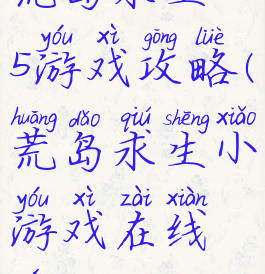 荒岛求生
yóu xì gōng lüè
5游戏攻略(
huāng dǎo qiú shēng xiǎo
荒岛求生小
yóu xì zài xiàn
游戏在线